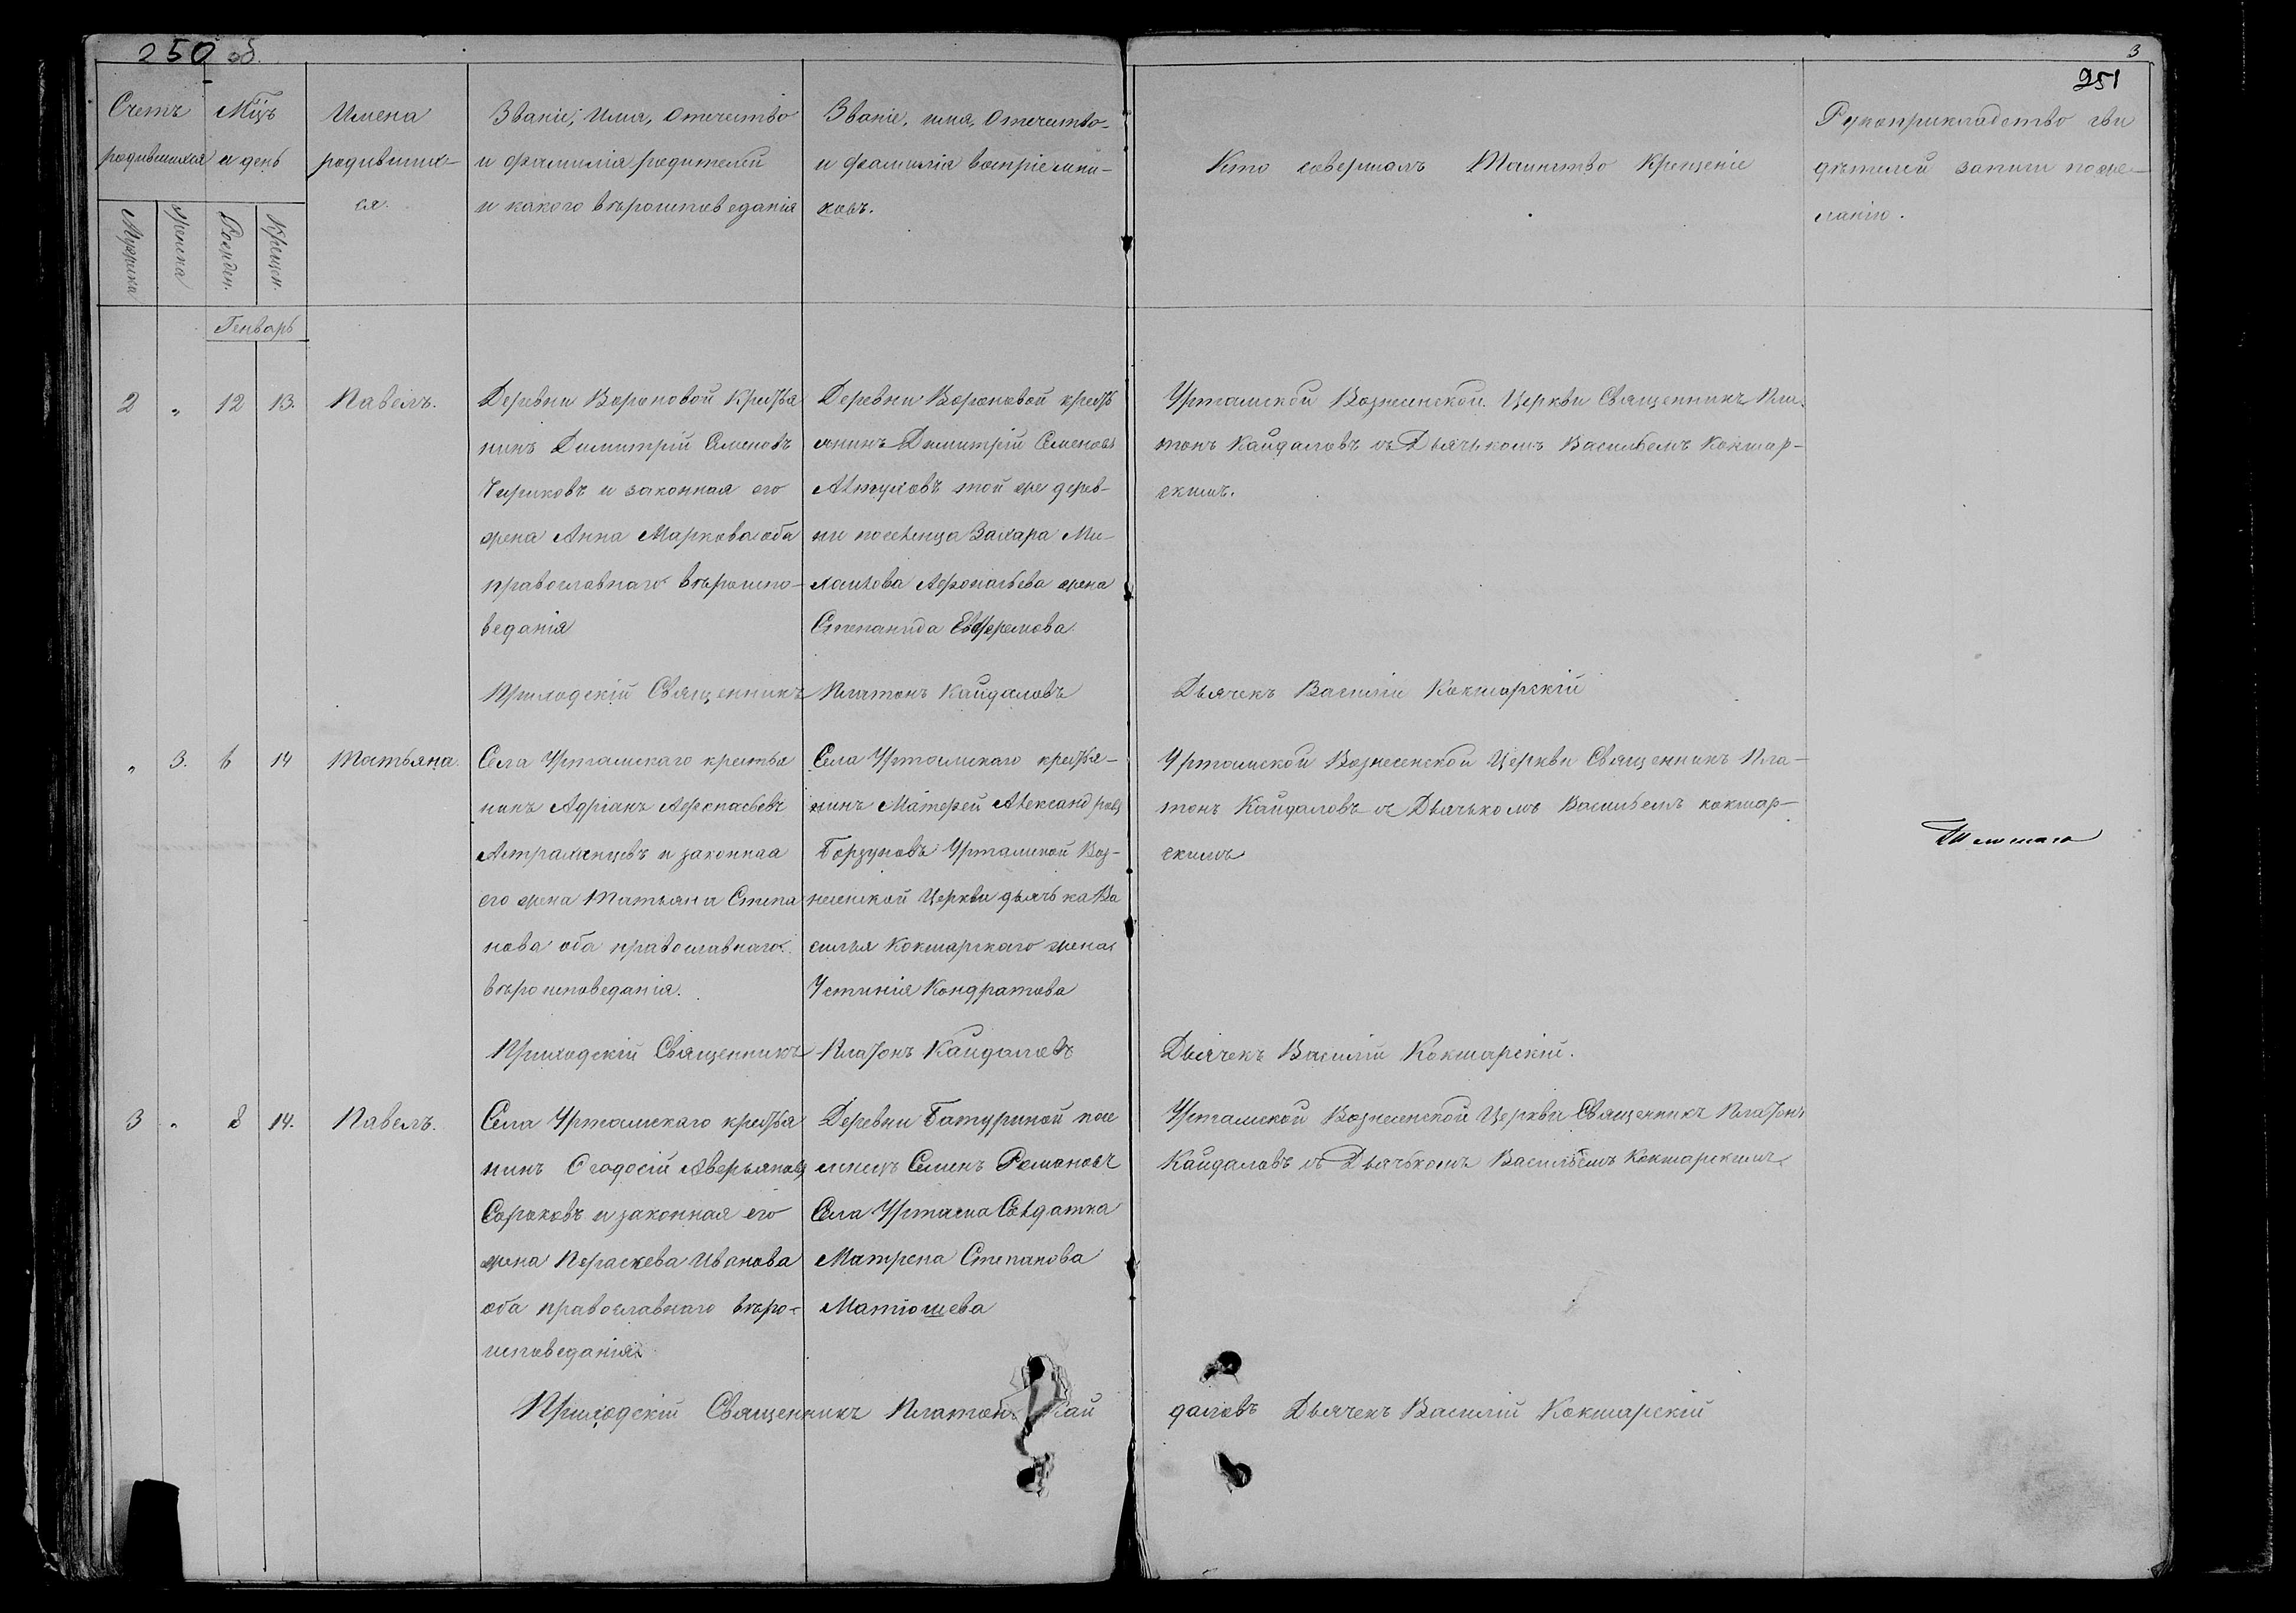 250 об.
3
251
Счетъ родившихся
Мужеска
Женска
Мцъ и день
Рожден.
Крещен.
Имена родивших-
ся.
Званіе, Имя, Отечество
и фамилія родителей
и какого вѣроисповеданія
Званіе, имя, Отечество
и фамилія воспріемни-
ковъ.
Кто совершалъ Таинство Крещеніе
Рукоприкладство сви
дѣтелей записи по же-
ланію.
Генварь
2 „ 12 13. Павелъ.
Деревни Вороновой Кресть
нинъ Димитрій Семеновъ
Чириковъ и законная его
жена Анна Маркова оба
православнаго вѣроиспо-
веданія
Деревни Вороновой кресть
янинъ Димитрій Семеновъ
той же дерев-
ни поселенца Захара Ми-
жена
Степанида Евфремова
Уртамской Вознесенской Церкви Священникъ Пла-
тонъ Кайдаловъ съ Дьячькомъ Васильемъ Кокшар-
скимъ.
Приходскій Священникъ Платонъ Кайдаловъ Дьячекъ Василій Кокшарскій
„ 3. 6 14 Татьяна.
Села Уртамскаго крестья
нинъ Адріанъ Афонасьевъ
Астраханцевъ и законная
его жена Татьяна Степа
нова оба православнаго
вѣроисповеданія.
Села Уртамскаго крестья-
нинъ Матфей Александровъ
Борзуновъ Уртамской Воз-
несенской Церкви дьячька Ва
силья Кокшарскаго жена
Устинія Кондратова
Уртамской Вознесенской Церкви Священникъ Пла-
тонъ Кайдаловъ съ Дьячькомъ Васильемъ кокшар-
скимъ
Приходскій Священникъ Платонъ Кайдаловъ Дьячекъ Василій Кокшарскій.
3 „ 8 14. Павелъ.
Села Уртамскаго крестья
нинъ Феодосій Аверьяновъ
Сороковъ и законная его
жена Пераскева Иванова
оба православнаго вѣро-
исповеданія.
Деревни Батуриной посе
ленецъ Семенъ Романовъ
Села Уртама Солдатка
Матрена Степанова
Матюшева
Уртамской Вознесенской Церкви Священникъ Платонъ
Кайдаловъ съ Дьячькомъ Васильемъ Кокшарскимъ
Приходскій Священникъ Платонъ Кай
даловъ Дьячекъ Василій Кокшарскій